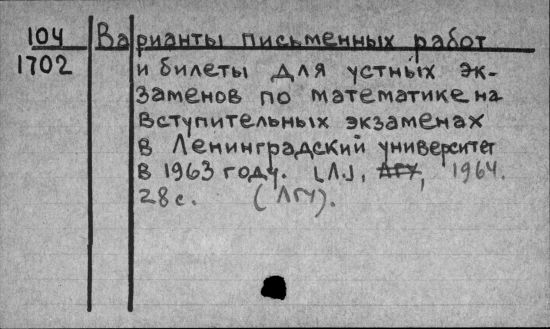 104 Варианты письменных работ
1702 и билеты для устных эк-
заменов по математике на
вступительных экзаменах
в Ленинградский университет
в 1963 году. [Л.], ЛГУ, 1964.
28 с. (ЛГУ).